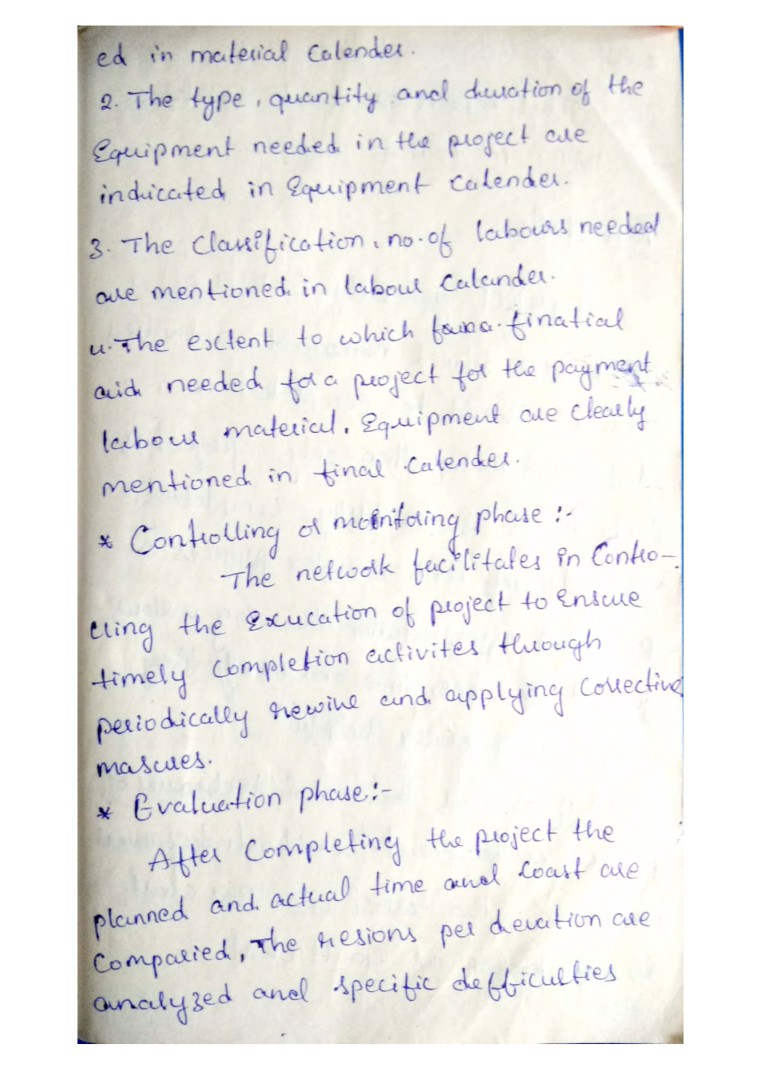 ed in material Calender.
2. The type, quantity and duration of the
Equipment needed in the project are
indicated in Equipment Calender.
3. The Classification, no. of labours needed
are mentioned in labour Calander.
4. The extent to which finatial
aid needed for a project for the payment
labour material, Equipment are Clearly
mentioned in final Calender.
* Controlling or monitoring phase :-
The network facilitates in Contro-
lling the Exucation of project to Ensure
timely Completion activites through
periodically rewine and applying Corrective
mascures.
* Evaluation phase:-
After Completing the project the
planned and actual time and Coast are
Comparied, The resions per deration are
analyzed and specific defficulties